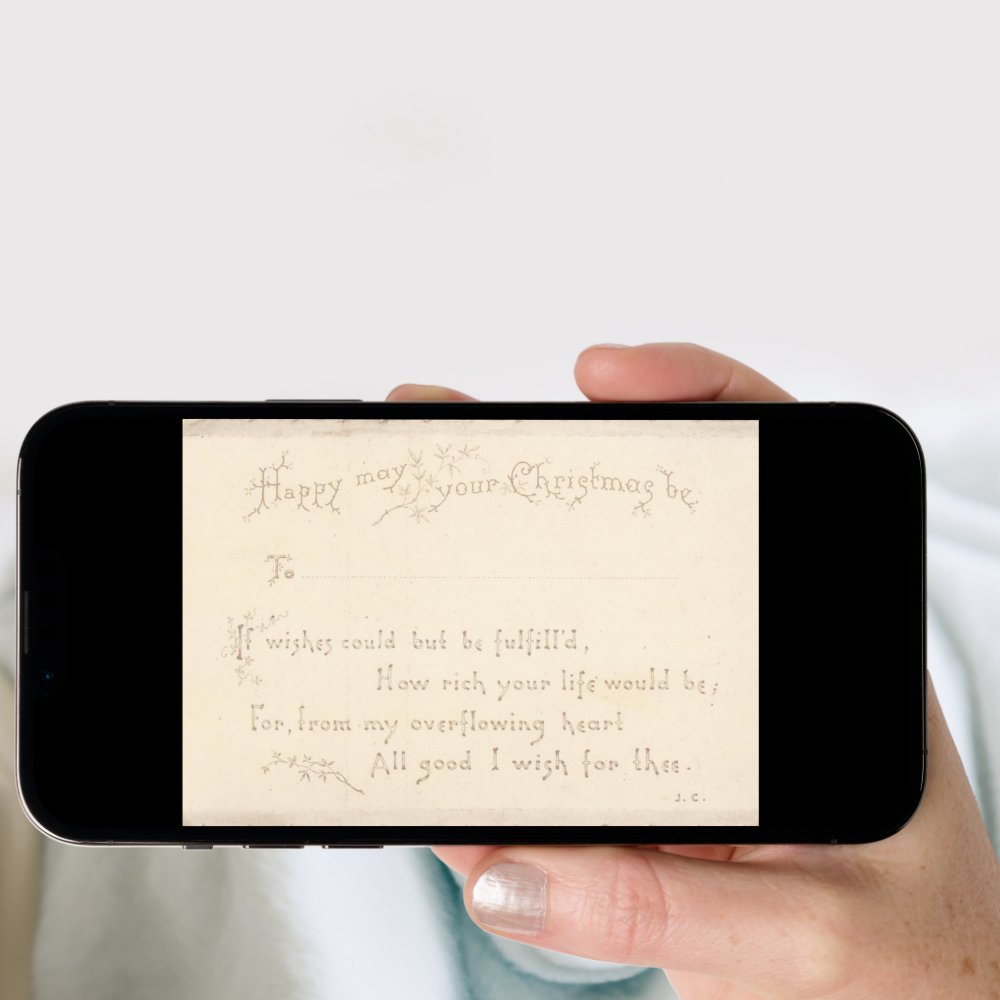 Happy may your Christmas be
To
If wishes could but be fulfill'd,
How rich your life would be;
For, from my overflowing heart
All good I wish for thee.
J. C.